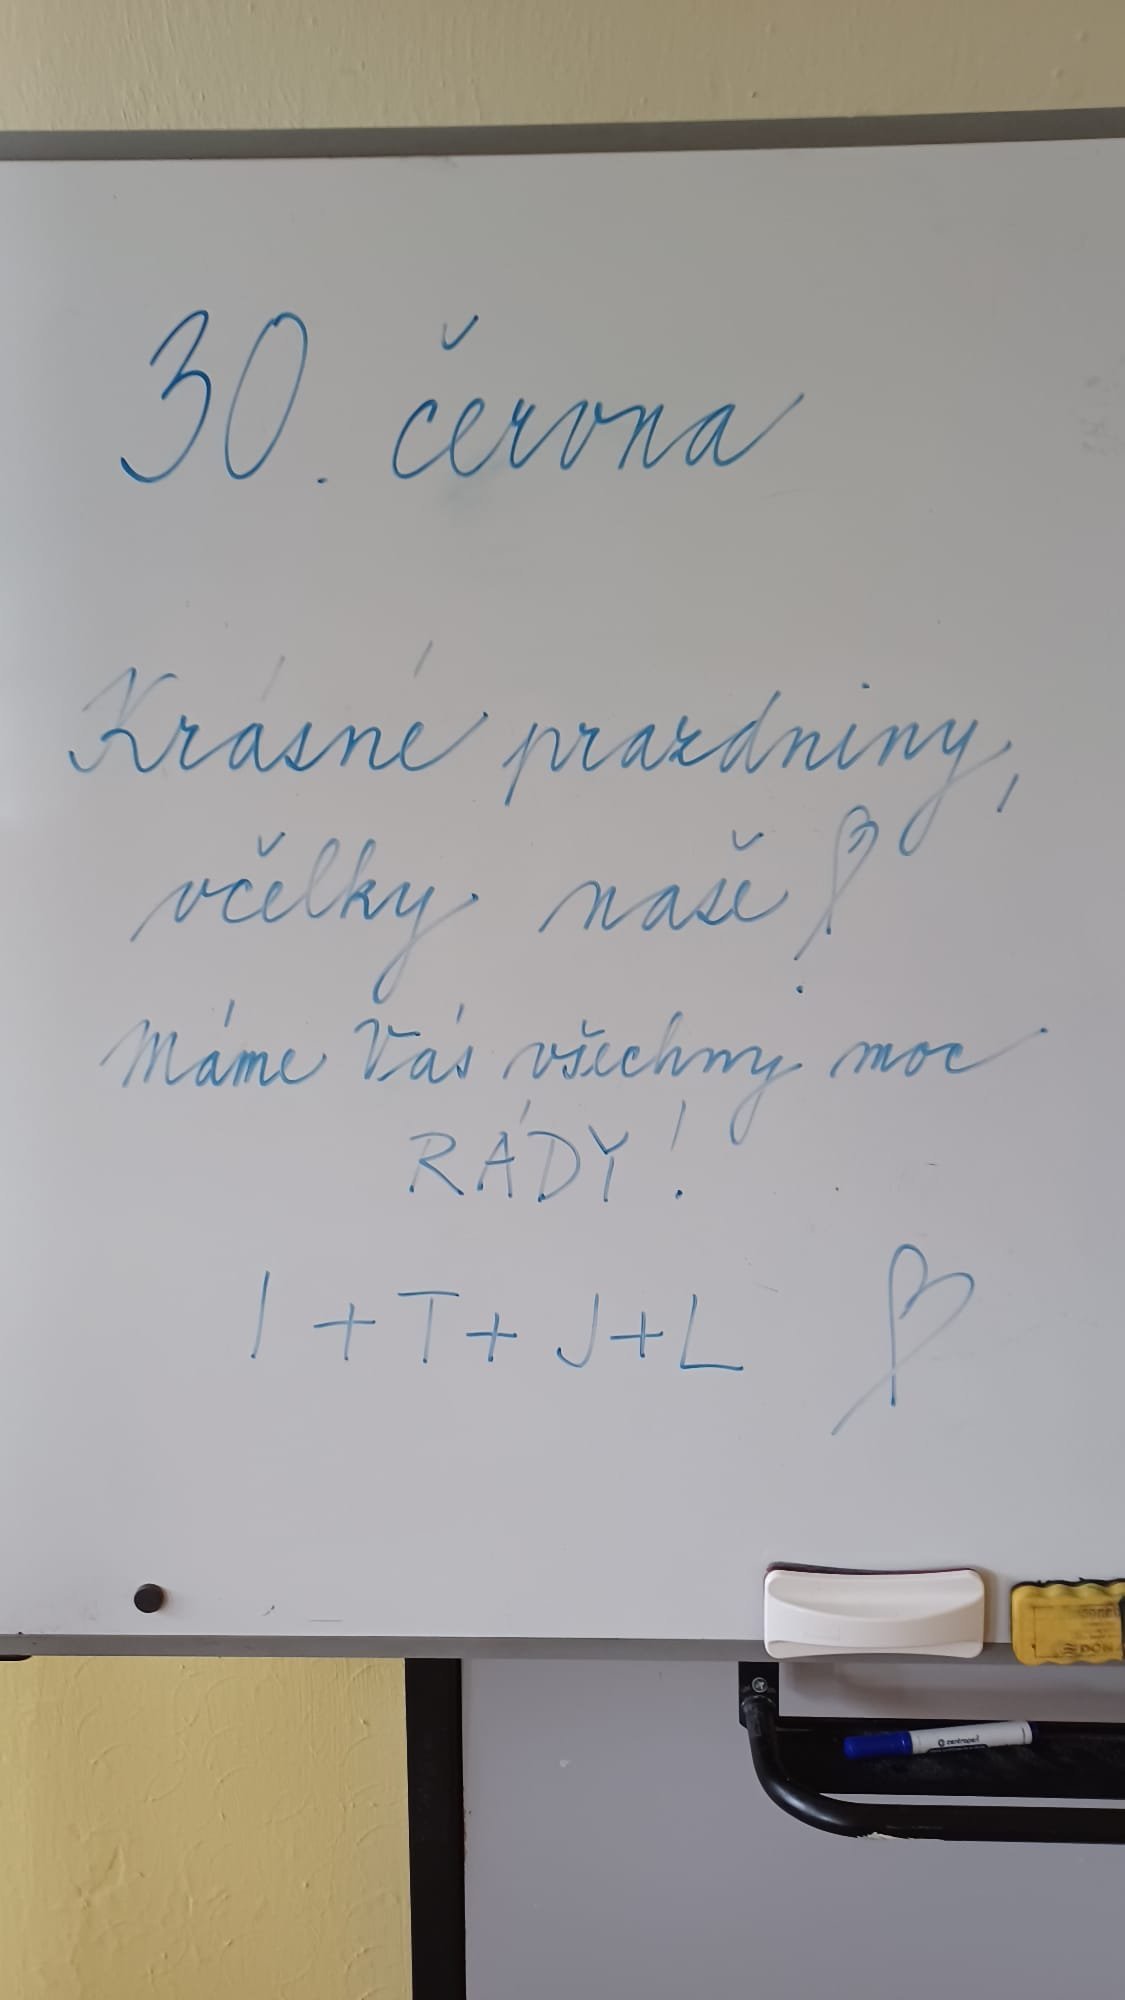 30. června
Krásné prazdniny,
včelky naše!
Máme Vás všechny moc
RÁDY!
I + T + J + L
centropen